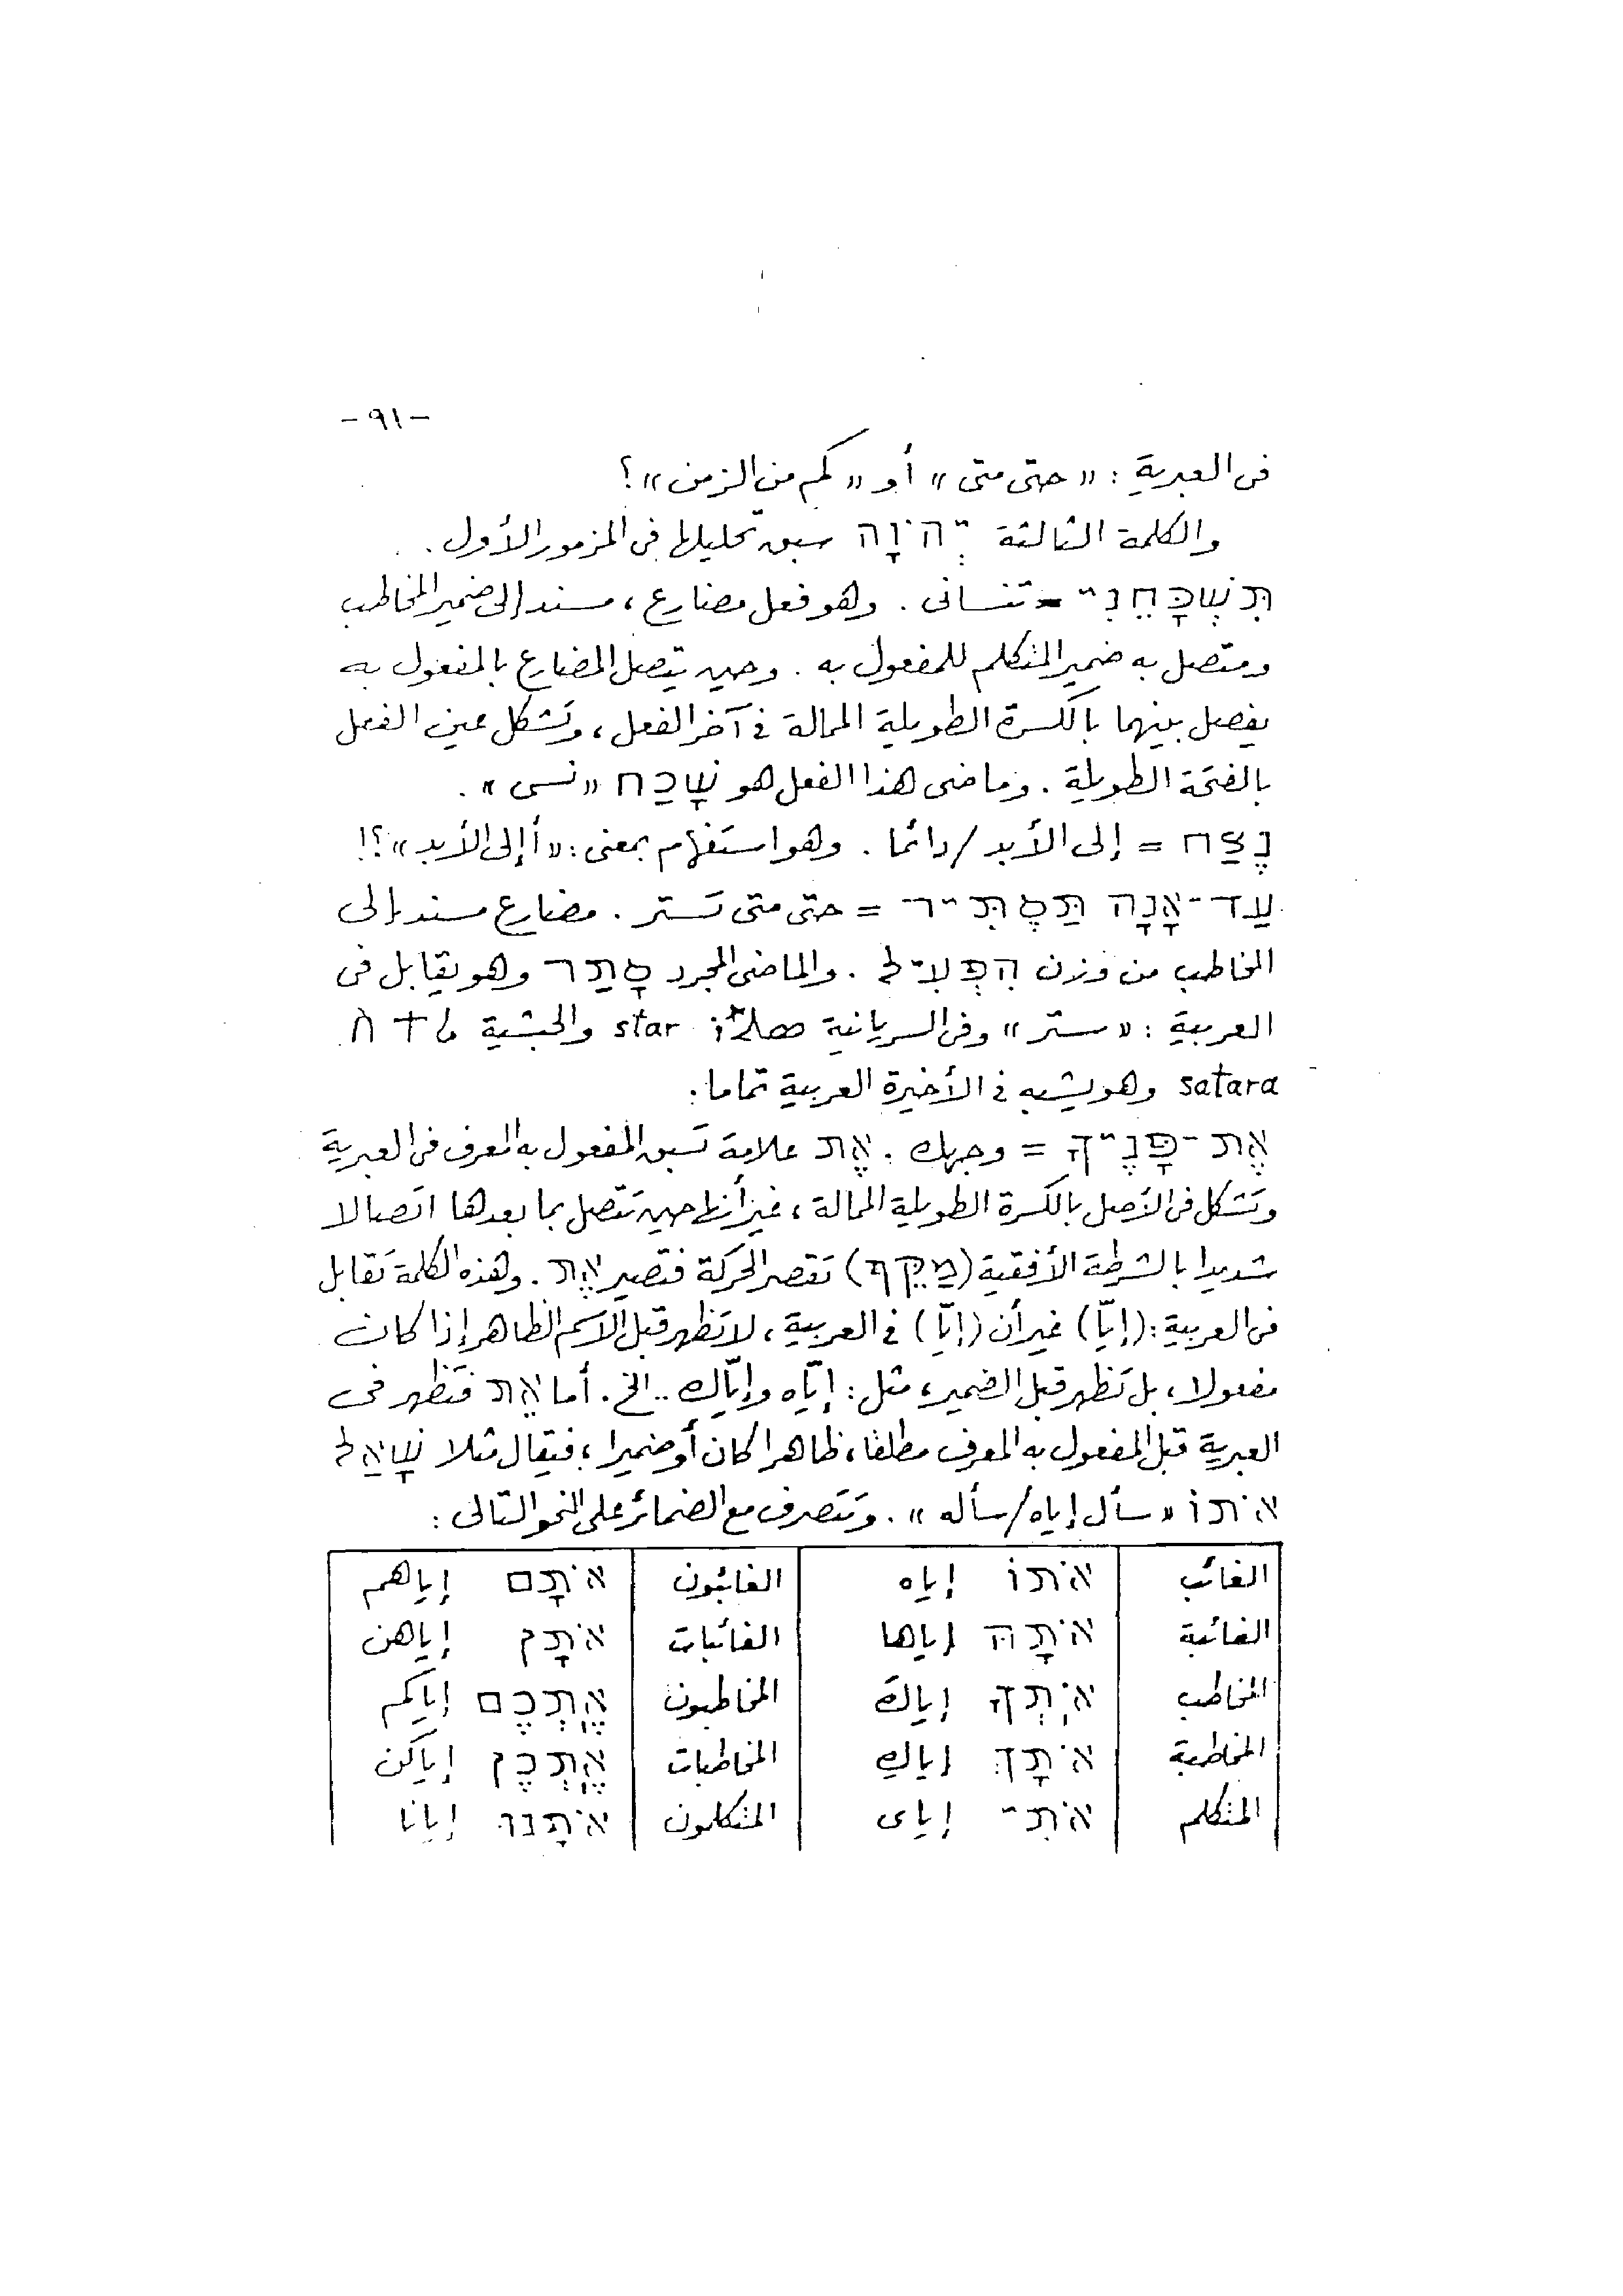 -٩١-
فى العبرية : «حتى متى» أو «كم من الزمن»؟
والكلمة الثالثة יְהֹוָה سبق تحليلها فى المزمور الأول .
תִּשְׁכָּחֵנִי = تنسانى . وهو فعل مضارع ، مسند إلى ضمير المخاطب
ومتصل به ضمير المتكلم للمفعول به . وحين يتصل المضارع بالمفعول به
يفصل بينهما بالكسرة الطويلة الممالة فى آخر الفعل ، وتشكل عين الفعل
بالفتحة الطويلة . وماضى هذا الفعل هو שָׁכַח «نسى» .
נֶצַח = إلى الأبد / دائما . وهو استفهام بمعنى : «أإلى الأبد»؟!
עַד־אָנָה תַּסְתִּיר = حتى متى تستر . مضارع مسند إلى
المخاطب من وزن הִפְעִיל . والماضى المجرد סָתַר وهو يقابل فى
العربية : «ستر» وفى السريانية ܣܬܪ star والحبشية ሰተረ
satara وهو يشبه فى الأخيرة العربية تماما .
אֶת־פָּנֶיךָ = وجهك . אֶת علامة تسبق المفعول به المعرف فى العبرية
وتشكل فى الأصل بالكسرة الطويلة الممالة ، غير أنها حين تتصل بما بعدها اتصالا
شديدا بالشرطة الأفقية (מַקֵּף) تقصر الحركة فتصير אֶת . وهذه الكلمة تقابل
فى العربية : (إيّا) غير أن (إيّا) فى العربية ، لا تظهر قبل الاسم الظاهر إذا كان
مفعولا ، بل تظهر قبل الضمير ، مثل : إيّاه وإيّاك .. الخ . أما אֶת فتظهر فى
العبرية قبل المفعول به المعرف مطلقا ، ظاهرا كان أو ضميرا ، فيقال مثلا שָׁאַל
אֹתוֹ «سأل إياه / سأله» . وتتصرف مع الضمائر على النحو التالى :
الغائب אֹתוֹ إياه الغائبون אֹתָם إياهم
الغائبة אֹתָהּ إياها الغائبات אֹתָן إياهن
المخاطب אֹתְךָ إياكَ المخاطبون אֶתְכֶם إياكم
المخاطبة אֹתָךְ إياكِ المخاطبات אֶתְכֶן إياكن
المتكلم אֹתִי إياى المتكلمون אֹתָנוּ إيانا